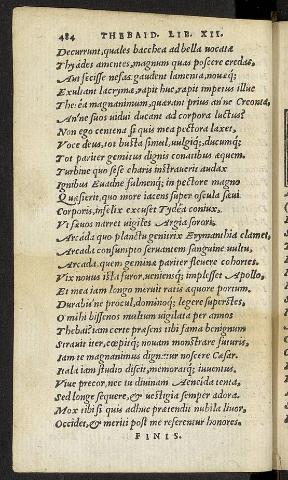 484 THEBAID. LIB. XII.
Decurrunt, quales bacchea ad bella uocatæ
Thyádes amentes, magnum quas poscere credas,
Aut fecisse nefas. gaudent lamenta, nouæq;
Exultant lacrymæ, rapit huc, rapit impetus illuc
Thesea magnanimum, quærant prius anne Creonta,
An'ne suos uidui ducant ad corpora luctus?
Non ego centena si quis mea pectora laxet,
Voce deus, tot busta simul, uulgiq; ducumq;
Tot pariter gemitus dignis conatibus æquem.
Turbine quo sese charis instrauerit audax
Ignibus Euadne fulmenq; in pectore magno
Quæsierit, quo more iacens super oscula sæui
Corporis, infelix excuset Tydea coniux,
Vt sæuos narret uigiles Argia sorori,
Arcada quo planctu genitrix Erymanthia clamet,
Arcada consumpto seruantem sanguine uultu,
Arcada, quem geminæ pariter fleuere cohortes.
Vix nouus ista furor, ueniensq; implesset Apollo,
Et mea iam longo meruit ratis æquore portum.
Durabis'ne procul, dominoq; legere superstes,
O mihi bissenos multum uigilata per annos
Thebai? iam certe præsens tibi fama benignum
Strauit iter, cœpitq; nouam monstrare futuris,
Iam te magnanimus dignatur noscere Cæsar.
Itala iam studio discit, memoratq; iuuentus.
Viue precor, nec tu diuinam Aeneida tenta,
Sed longe sequere, & uestigia semper adora.
Mox tibi si quis adhuc prætendit nubila liuor,
Occidet, & meriti post me referentur honores.
FINIS.